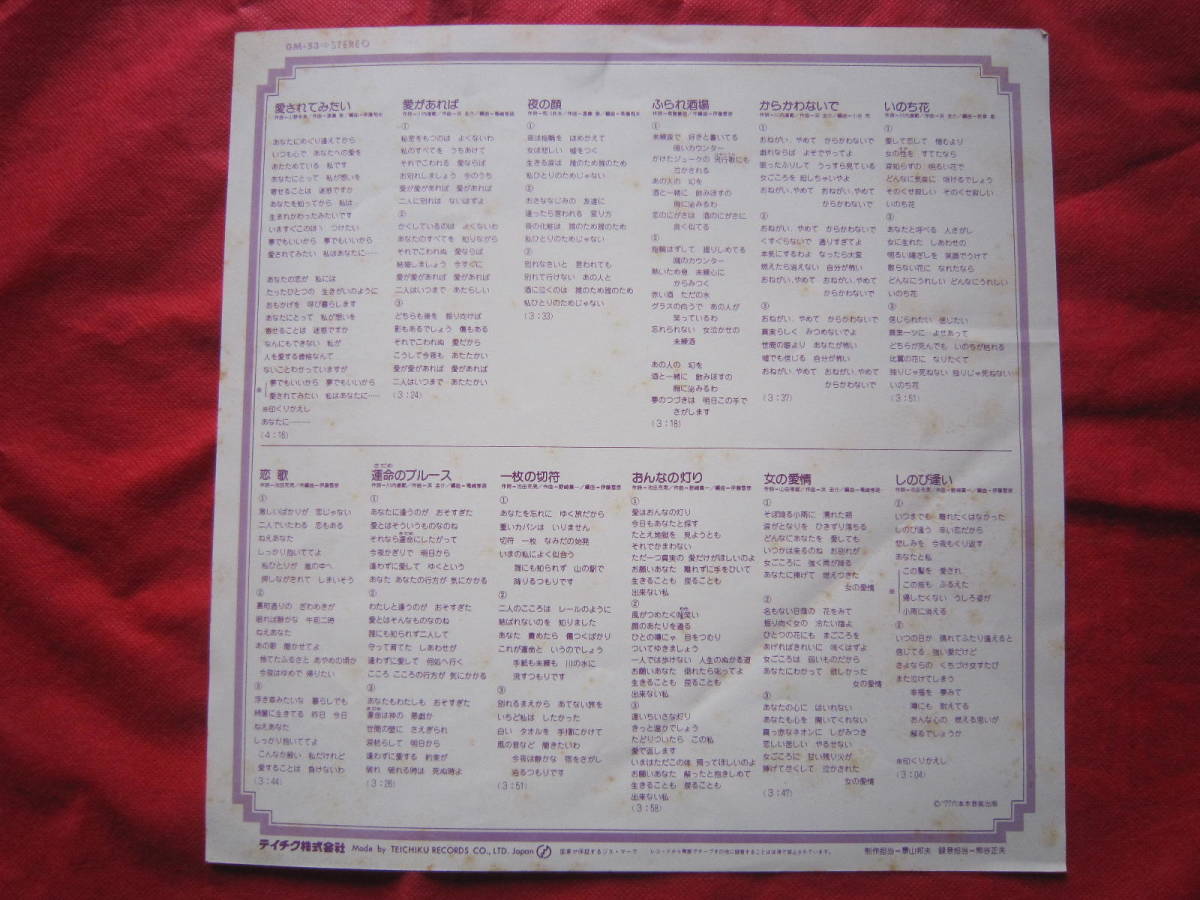 GM-53 STEREO
愛されてみたい
あなたにめぐり逢えてから
いつも心で あなたへの愛を
あたためている 私です
あなたにとって 私が想いを
寄せることは 迷惑ですか
あなたを知ってから 私は
生まれかわったみたいです
夢でもいいから 夢でもいいから
愛されてみたい 私はあなたに……
あなたの恋が 私には
たったひとつの 生きがいのように
おもかげを 呼び暮らします
あなたにとって 私が想いを
寄せることは 迷惑ですか
なんにもできない 私が
人を愛する資格なんて
ないことわかっていますが
夢でもいいから 夢でもいいから
愛されてみたい 私はあなたに……
※印くりかえし
あなたに………
(4:16)
愛があれば
①
秘密をもつのは よくないわ
私のすべてを うちあけて
それでこわれる 愛ならば
お別れしましょう 今のうち
愛が愛があれば 愛があれば
二人に別れは ないはずよ
②
かくしているのは よくないわ
あなたのすべてを 知りながら
それでこわれぬ 愛ならば
結婚しましょう 今すぐに
愛が愛があれば 愛があれば
二人はいつまで あたらしい
③
どちらも後を 振り向けば
影もあるでしょう 傷もある
それでこわれぬ 愛だから
こうして今夜も あたたかい
愛が愛があれば 愛があれば
二人はいつまで あたたかい
(3:24)
夜の顔
①
夜は指輪を はめかえて
女は悲しい 嘘をつく
生きる涙は 誰のため誰のため
私ひとりのためじゃない
②
おさななじみの 友達に
逢ったら言われる 変り方
夜の化粧は 誰のため誰のため
私ひとりのためじゃない
③
別れなさいと 言われても
別れて行けない あの人と
酒に泣くのは 誰のため誰のため
私ひとりのためじゃない
(3:33)
ふられ酒場
①
未練涙で 好きと書いてる
暗いカウンター
かけたジュークの 流行歌にも
泣かされる
あの人の 幻を
酒と一緒に 飲みほすの
胸に沁みるわ
恋のにがさは 酒のにがさに
良く似てる
②
指輪はずして 握りしめてる
隅のカウンター
熱いため息 未練心に
からみつく
赤い酒 ただの水
グラスの向うで あの人が
笑っているわ
忘れられない 女泣かせの
未練酒
あの人の 幻を
酒と一緒に 飲みほすの
胸に沁みるわ
夢のつづきは 明日この手で
さがします
(3:18)
からかわないで
①
おねがい、やめて からかわないで
戯れならば よそでやってよ
酔ったふりして うっすら見ている
女ごころを 試しちゃいやよ
おねがい、やめて おねがい、やめて
からかわないで
②
おねがい、やめて からかわないで
くすぐらないで 通りすぎてよ
本気にするわよ なったら大変
燃えたら消えない 自分が怖い
おねがい、やめて おねがい、やめて
からかわないで
③
おねがい、やめて からかわないで
真実らしく みつめないでよ
世間の噂より あなたが怖い
嘘でも信じる 自分が怖い
おねがい、やめて おねがい、やめて
からかわないで
(3:37)
いのち花
①
愛して恋して 憎むより
女の性を すてたなら
涙知らずの 明るい花で
どんなに気楽に 咲けるでしょう
そのくせ寂しい そのくせ寂しい
いのち花
②
あなたと呼べる 人さがし
女に生れた しあわせの
明るい陽ざしを 笑顔でうけて
散らない花に なれたなら
どんなにうれしい どんなにうれしい
いのち花
③
信じられたい 信じたい
真実一つに よせあって
どちらが死んでも いのちが枯れる
比翼の花に なりたくて
独りじゃ死ねない 独りじゃ死ねない
いのち花
(3:51)
恋歌
①
激しいばかりが 恋じゃない
二人でいたわる 恋もある
ねえあなた
しっかり抱いててよ
私ひとりが 嵐の中へ
押しながされて しまいそう
②
裏町通りの ざわめきが
眠れば静かな 午前二時
ねえあなた
あの歌 聞かせてよ
捨てたふるさと あやめの頃か
今夜はゆめで 帰りたい
③
浮き草みたいな 暮らしでも
綺麗に生きてる 昨日 今日
ねえあなた
しっかり抱いててよ
こんな細い 私だけれど
愛することは 負けないわ
(3:44)
運命のブルース
①
あなたに逢うのが おそすぎた
愛とはそういうものなのね
それなら運命にしたがって
今夜かぎりで 明日から
逢わずに愛して ゆくという
あなた あなたの行方が 気にかかる
②
わたしと逢うのが おそすぎた
愛とはそんなものなのね
誰にも知られず二人して
守って育てた しあわせが
逢わずに愛して 何処へ行く
こころ こころの行方が 気にかかる
③
あなたもわたしも おそすぎた
運命は神の 悪戯か
世間の壁に さえぎられ
涙枯らして 明日から
逢わずに愛する 約束が
破れ 破れる時は 死ぬ時よ
(3:26)
一枚の切符
①
あなたを忘れに ゆく旅だから
重いカバンは いりません
切符 一枚 なみだの始発
いまの私によく似合う
誰にも知られず 山の駅で
降りるつもりです
②
二人のこころは レールのように
結ばれないのを 知りました
あなた 責めたら 傷つくばかり
これが運命と いうのでしょう
手紙も未練も 川の水に
流すつもりです
③
別れるまえから あてない旅を
いちど私は したかった
白い タオルを 手摺にかけて
風の音など 聞きたいわ
今夜は静かな 宿をさがし
泊るつもりです
(3:51)
おんなの灯り
①
愛はおんなの灯り
今日もあなたと探す
たとえ地獄を 見ようとも
それでかまわない
ただ一つ真実の 愛だけがほしいのよ
お願いあなた 離れずに手をひいて
生きることも 戻ることも
出来ない私
②
風がつめたく嘲笑い
顔のあたりを通る
ひとの噂にゃ 目をつむり
ついてゆきましょう
一人では歩けない 人生のぬかる道
お願いあなた 倒れたら叱ってよ
生きることも 戻ることも
出来ない私
③
遠いちいさな灯り
きっと温かでしょう
たどりついたら この私
愛で返します
いまはただこの体 貸ってほしいのよ
お願いあなた 解ったと抱きしめて
生きることも 戻ることも
出来ない私
(3:58)
女の愛情
①
そぼ降る小雨に 濡れた頬
涙がとなりを ひきずり落ちる
どんなにあなたを 愛しても
いつかは来るのね お別れが
女ごころに 強く雨が降る
あなたに捧げて 燃えつきた
女の愛情
②
名もない日陰の 花をみて
振り向く女の 冷たい陰よ
ひとつの花にも まごころを
あげればきれいに 咲くはずよ
女ごころは 弱いものだから
あなたにわかって 欲しかった
女の愛情
③
あなたの心に はいれない
あなたも心を 開いてくれない
真っ赤なネオンに しがみつき
恋しい苦しい やるせない
女ごころに 甘い残り火が
捧げて尽くして 泣かされた
女の愛情
(3:47)
しのび逢い
①
いつまでも 離れたくはなかった
しのび逢う 辛い恋だから
悲しみを 今夜もくり返す
あなたと私
この髪を 愛され
この指も ふるえた
帰したくない うしろ姿が
小雨に消える
②
いつの日か 晴れてふたり逢えると
信じてる 強い愛だけど
さよならの くちづけ交すたび
また泣けてしまう
幸福を 夢みて
噂にも 耐えてる
おんな心の 燃える思いが
解るでしょうか
※印くりかえし
(3:04)
Ⓒ'77六本木音楽出版
テイチク株式会社 Made by TEICHIKU RECORDS CO., LTD. Japan